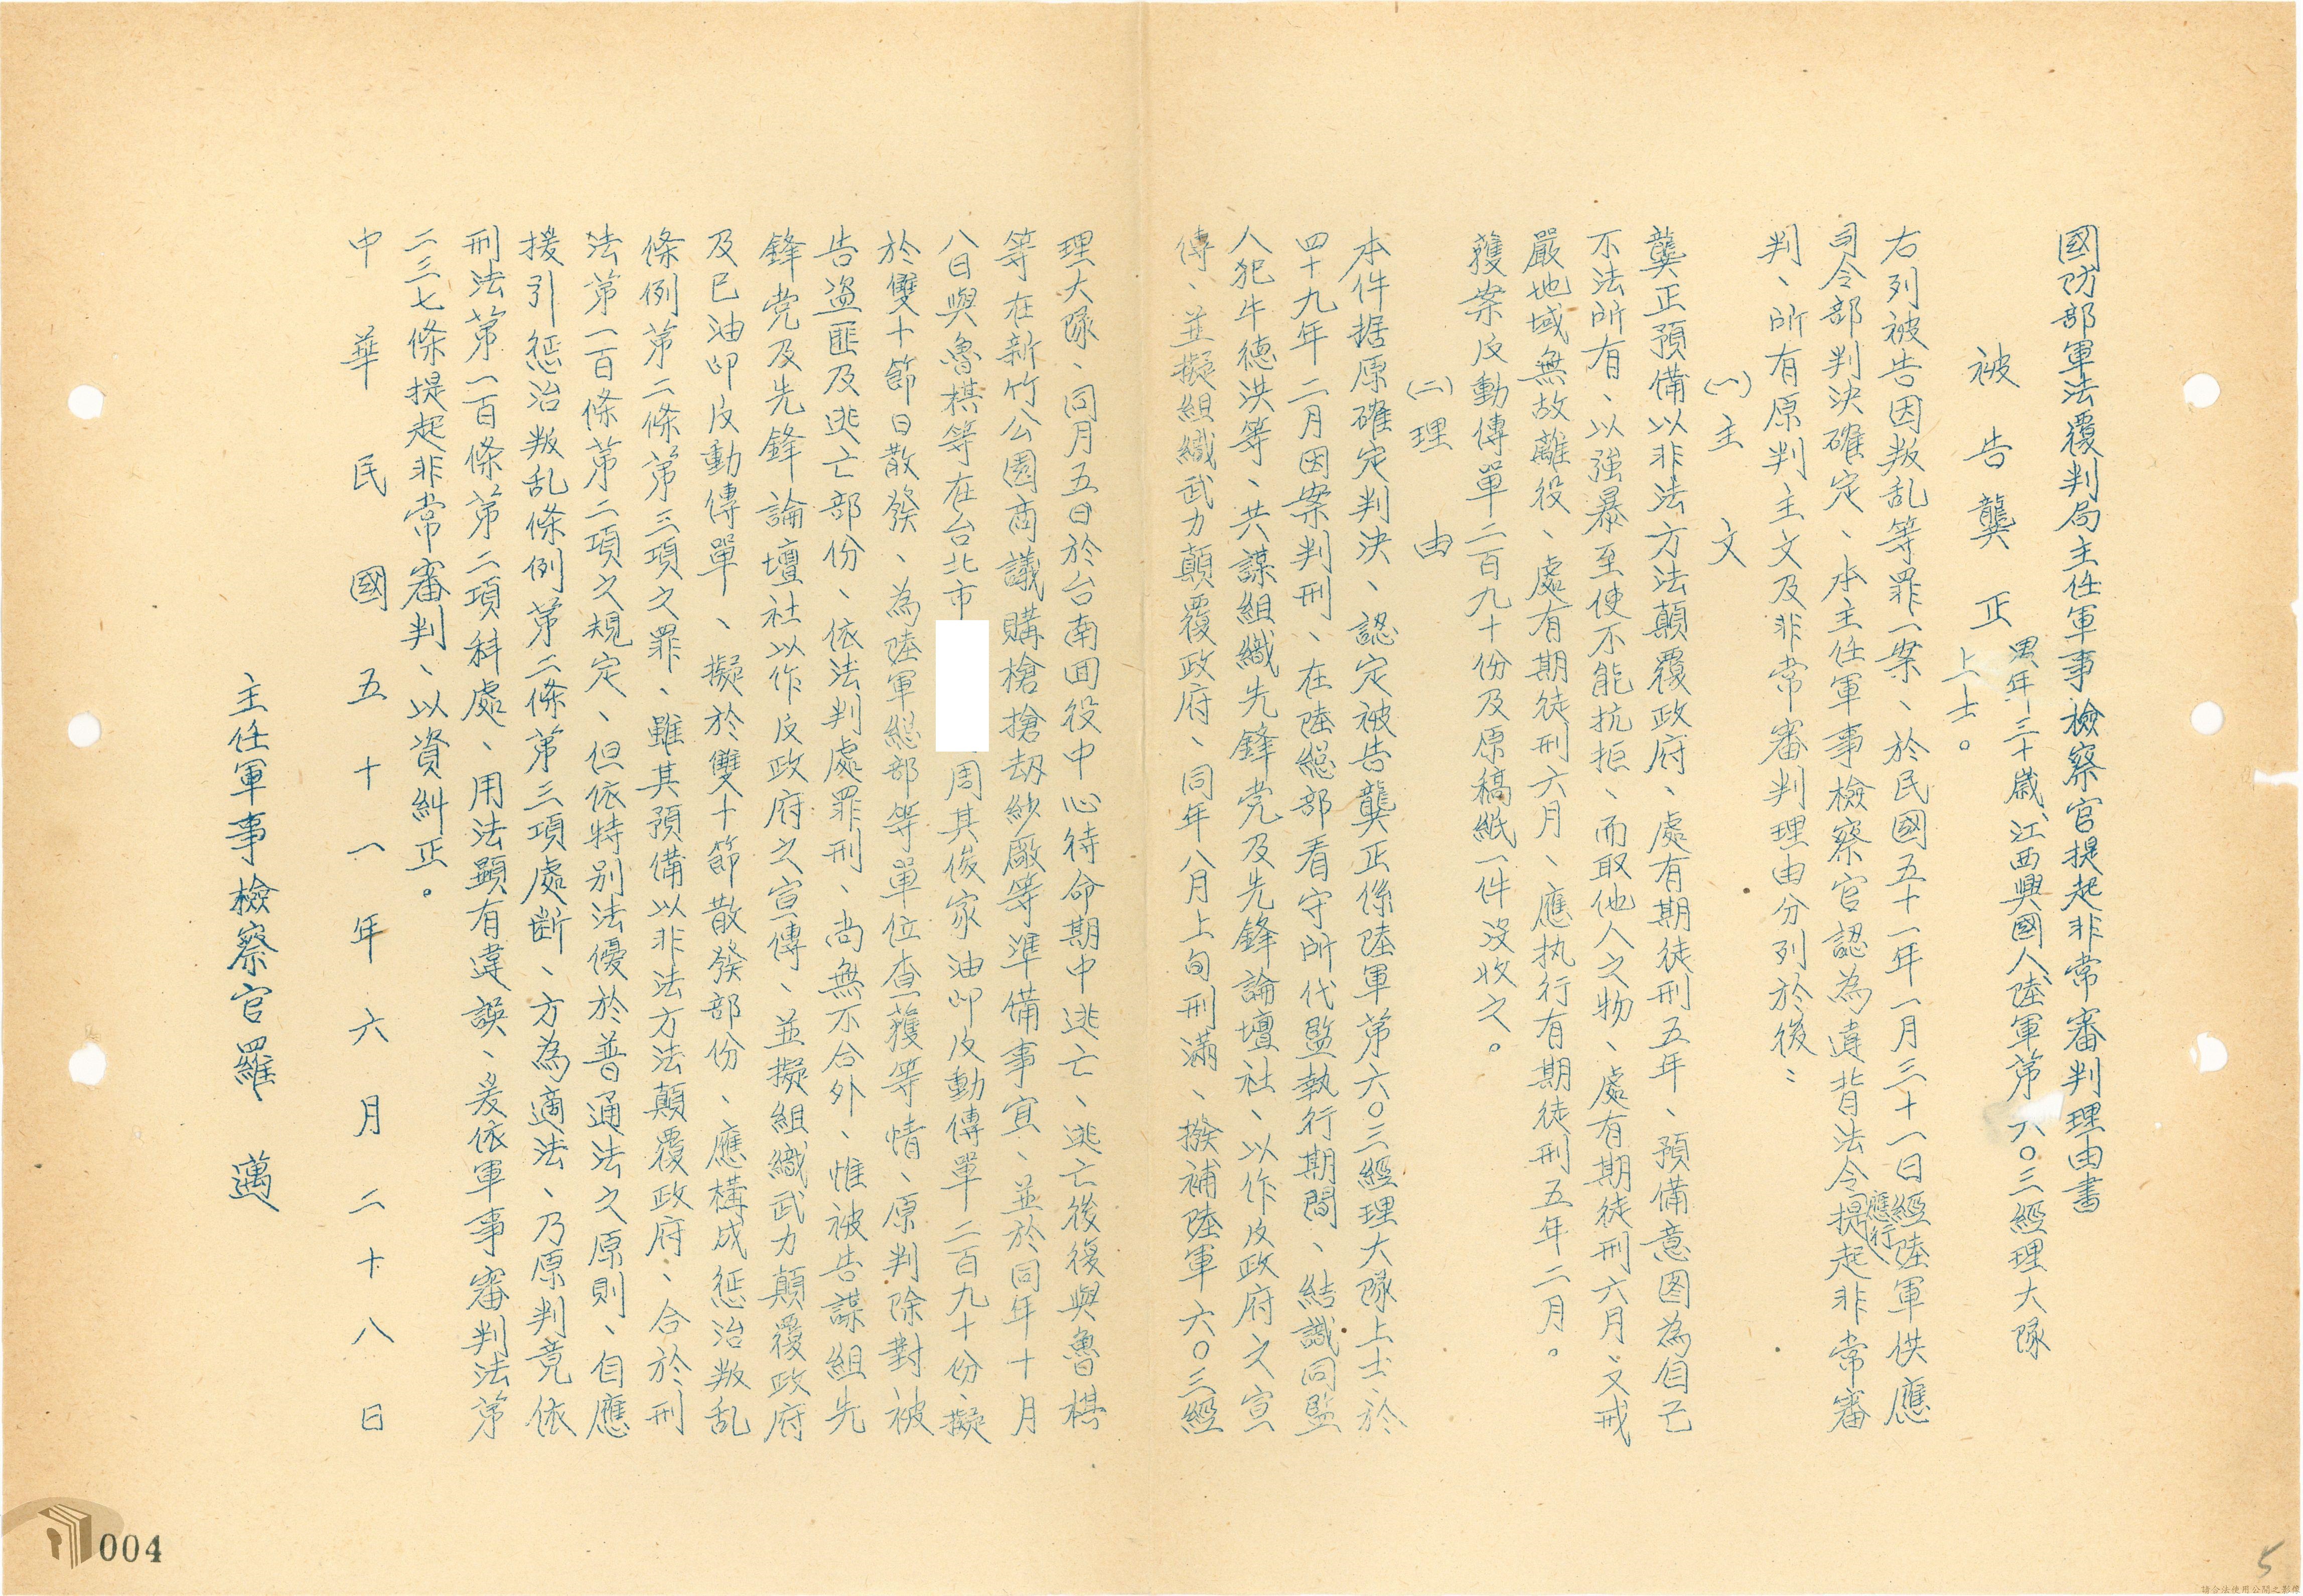 國防部軍法覆判局主任軍事檢察官提起非常審判理由書
被告龔正 男年三十歲、江西興國人、陸軍第六〇三經理大隊
上士。
右列被告因叛乱等罪一案、於民國五十一年一月三十一日經陸軍供應
司令部判決確定、本主任軍事檢察官認為違背法令應行提起非常審
判、所有原判主文及非常審判理由分列於後：
(一)主文
龔正預備以非法方法顛覆政府、處有期徒刑五年、預備意图為自己
不法所有、以強暴至使不能抗拒、而取他人之物、處有期徒刑六月、又戒
嚴地域無故離役、處有期徒刑六月、應执行有期徒刑五年二月。
獲案反動傳單二百九十份及原稿紙一件沒收之。
(二)理由
本件据原確定判決、認定被告龔正係陸軍第六〇三經理大隊上士、於
四十九年二月因案判刑、在陸總部看守所代監執行期間、結識同監
人犯牛德洪等、共謀組織先鋒党及先鋒論壇社、以作反政府之宣
傳、並擬組織武力顛覆政府、同年八月上旬刑滿、撥補陸軍六〇三經
理大隊、同月五日於台南回役中心待命期中逃亡、逃亡後復與魯棋
等在新竹公園商議購槍搶劫紗廠等準備事宜、並於同年十月
八日與魯棋等在台北市周其俊家油印反動傳單二百九十份、擬
於雙十節日散發、為陸軍總部等單位查獲等情、原判除對被
告盜匪及逃亡部份、依法判處罪刑、尚無不合外、惟被告謀組先
鋒党及先鋒論壇社以作反政府之宣傳、並擬組織武力顛覆政府
及已油印反動傳單、擬於雙十節散發部份、應構成懲治叛乱
條例第二條第三項之罪、雖其預備以非法方法顛覆政府、合於刑
法第一百條第二項之規定、但依特别法優於普通法之原則、自應
援引懲治叛乱條例第二條第三項處断、方為適法、乃原判竟依
刑法第一百條第二項科處、用法顕有違誤、爰依軍事審判法第
二三七條提起非常審判、以資糾正。
中華民國五十一年六月二十八日
主任軍事檢察官羅邁
004
5
請合法使用公開之影像